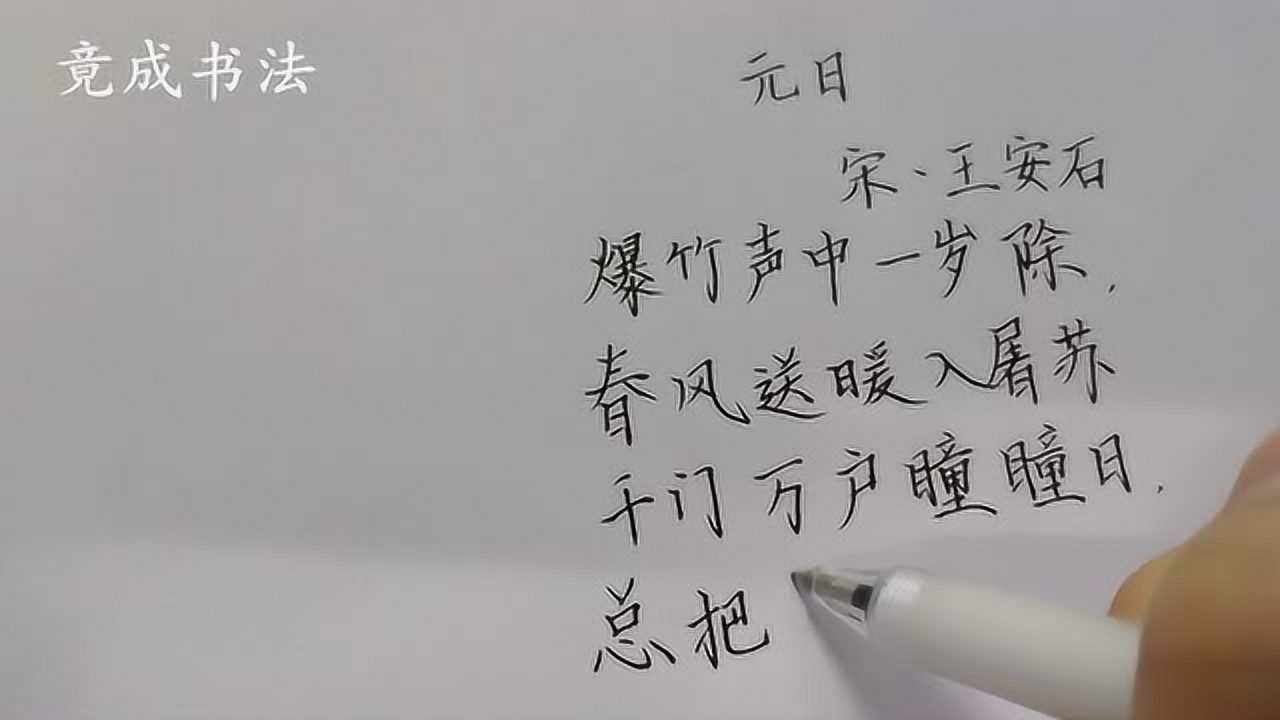 竟成书法
元日
宋、王安石
爆竹声中一岁除，
春风送暖入屠苏
千门万户瞳瞳日，
总把